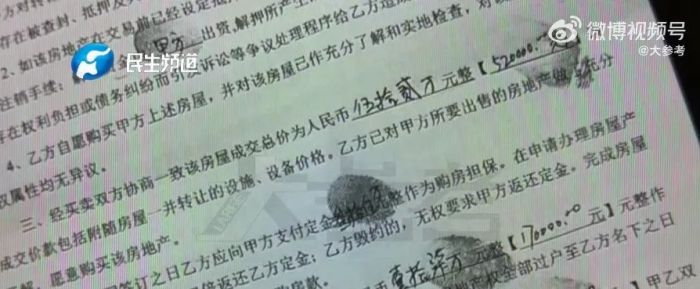 微博视频号
@大参考
民生频道
存在被查封、抵押及
2、如该房地产在交易前已经设定抵
注销手续: 甲方 出资,解押所产生
存在权利负担或债务纠纷而引 诉讼等争议处理程序给乙方造
4、乙方自愿购买甲方上述房屋,并对该房屋已作充分了解和实地检查,对
权属性均无异议。
三、经买卖双方协商一致该房屋成交总价为人民币 伍拾贰万 元整【520000.00 元】
成交价款包括附随房屋一并转让的设施、设备价格。乙方已对甲方所要出售的房地产做了充分
解,愿意购买该房地产。
签订之日乙方应向甲方支付定金 整作为购房担保。在申请办理房屋产
倍返还乙方定金;乙方毁约的,无权要求甲方返还定金。完成房屋
购房款。 币 壹拾柒万 元整【170000.00 元】元整作
地产权全部过户至乙方名下之日
甲乙双